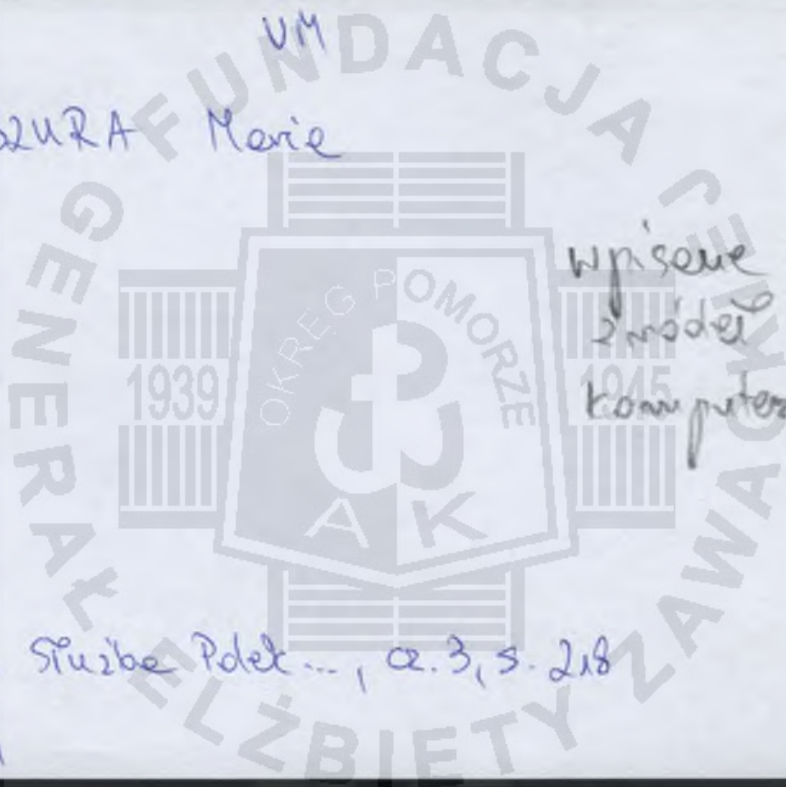 VM
ZURA Maria
wpisane
źródeł
komputer
Służba Polek..., cz. 3, s. 218
FUNDACJA GENERAŁ ELŻBIETY ZAWACKIEJ
OKRĘG POMORZE
1939
1945
AK